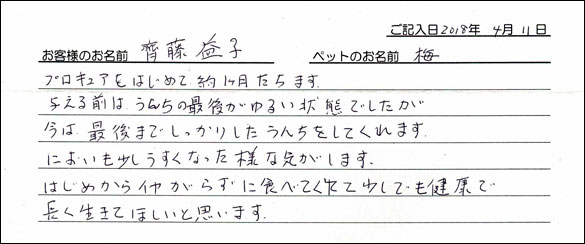 ご記入日2018年 4月 11日
お客様のお名前 齊藤 益子 ペットのお名前 梅
プロキュアをはじめて約1ヶ月たちます。
与える前は、うんちの最後がゆるい状態でしたが
今は、最後までしっかりしたうんちをしてくれます。
においも少しうすくなった様な気がします。
はじめからイヤがらずに食べてくれて少しでも健康で
長く生きてほしいと思います。